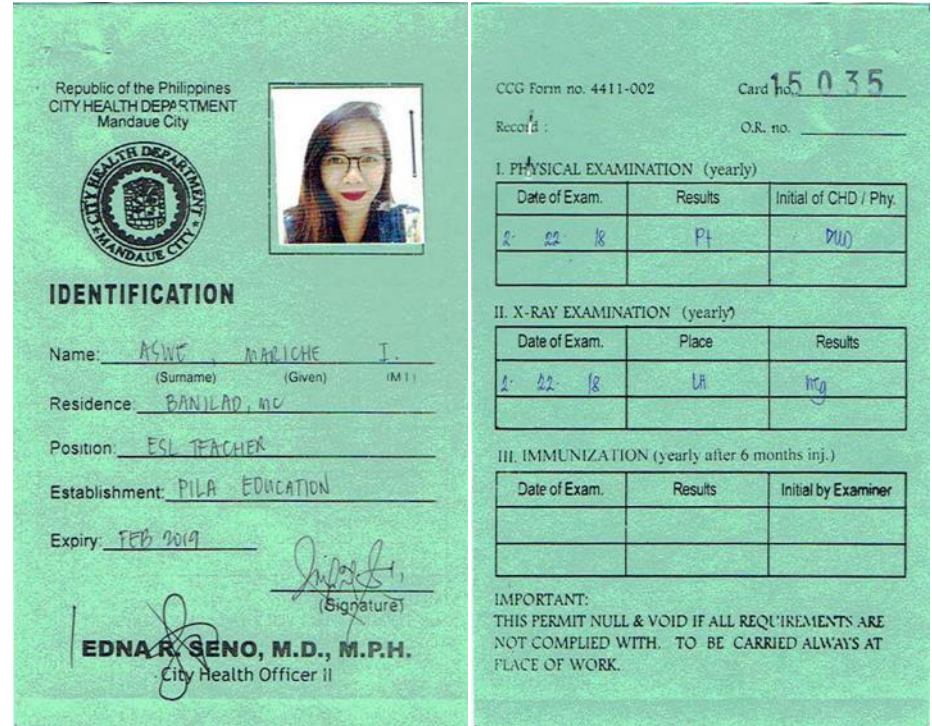 Republic of the Philippines
CITY HEALTH DEPARTMENT
Mandaue City
CITY HEALTH DEPARTMENT
MANDAUE CITY
IDENTIFICATION
Name: ASWE, MARICHE I.
(Surname) (Given) (M I)
Residence: BANILAD, MC
Position: ESL TEACHER
Establishment: PILA EDUCATION
Expiry: FEB 2019
(Signature)
EDNA R. SENO, M.D., M.P.H.
City Health Officer II
CCG Form no. 4411-002 Card no. 15035
Record : O.R. no.
I. PHYSICAL EXAMINATION (yearly)
Date of Exam. Results Initial of CHD / Phy.
2- 22- 18
II. X-RAY EXAMINATION (yearly)
Date of Exam. Place Results
2- 22- 18 LH neg
III. IMMUNIZATION (yearly after 6 months inj.)
Date of Exam. Results Initial by Examiner
IMPORTANT:
THIS PERMIT NULL & VOID IF ALL REQUIREMENTS ARE
NOT COMPLIED WITH. TO BE CARRIED ALWAYS AT
PLACE OF WORK.